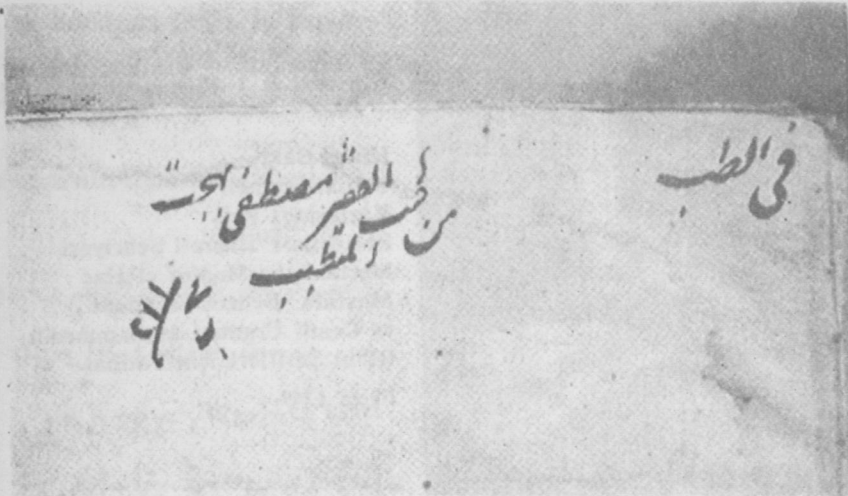 فى الطب
من كتب الفقير مصطفى بهجت
المتطبب